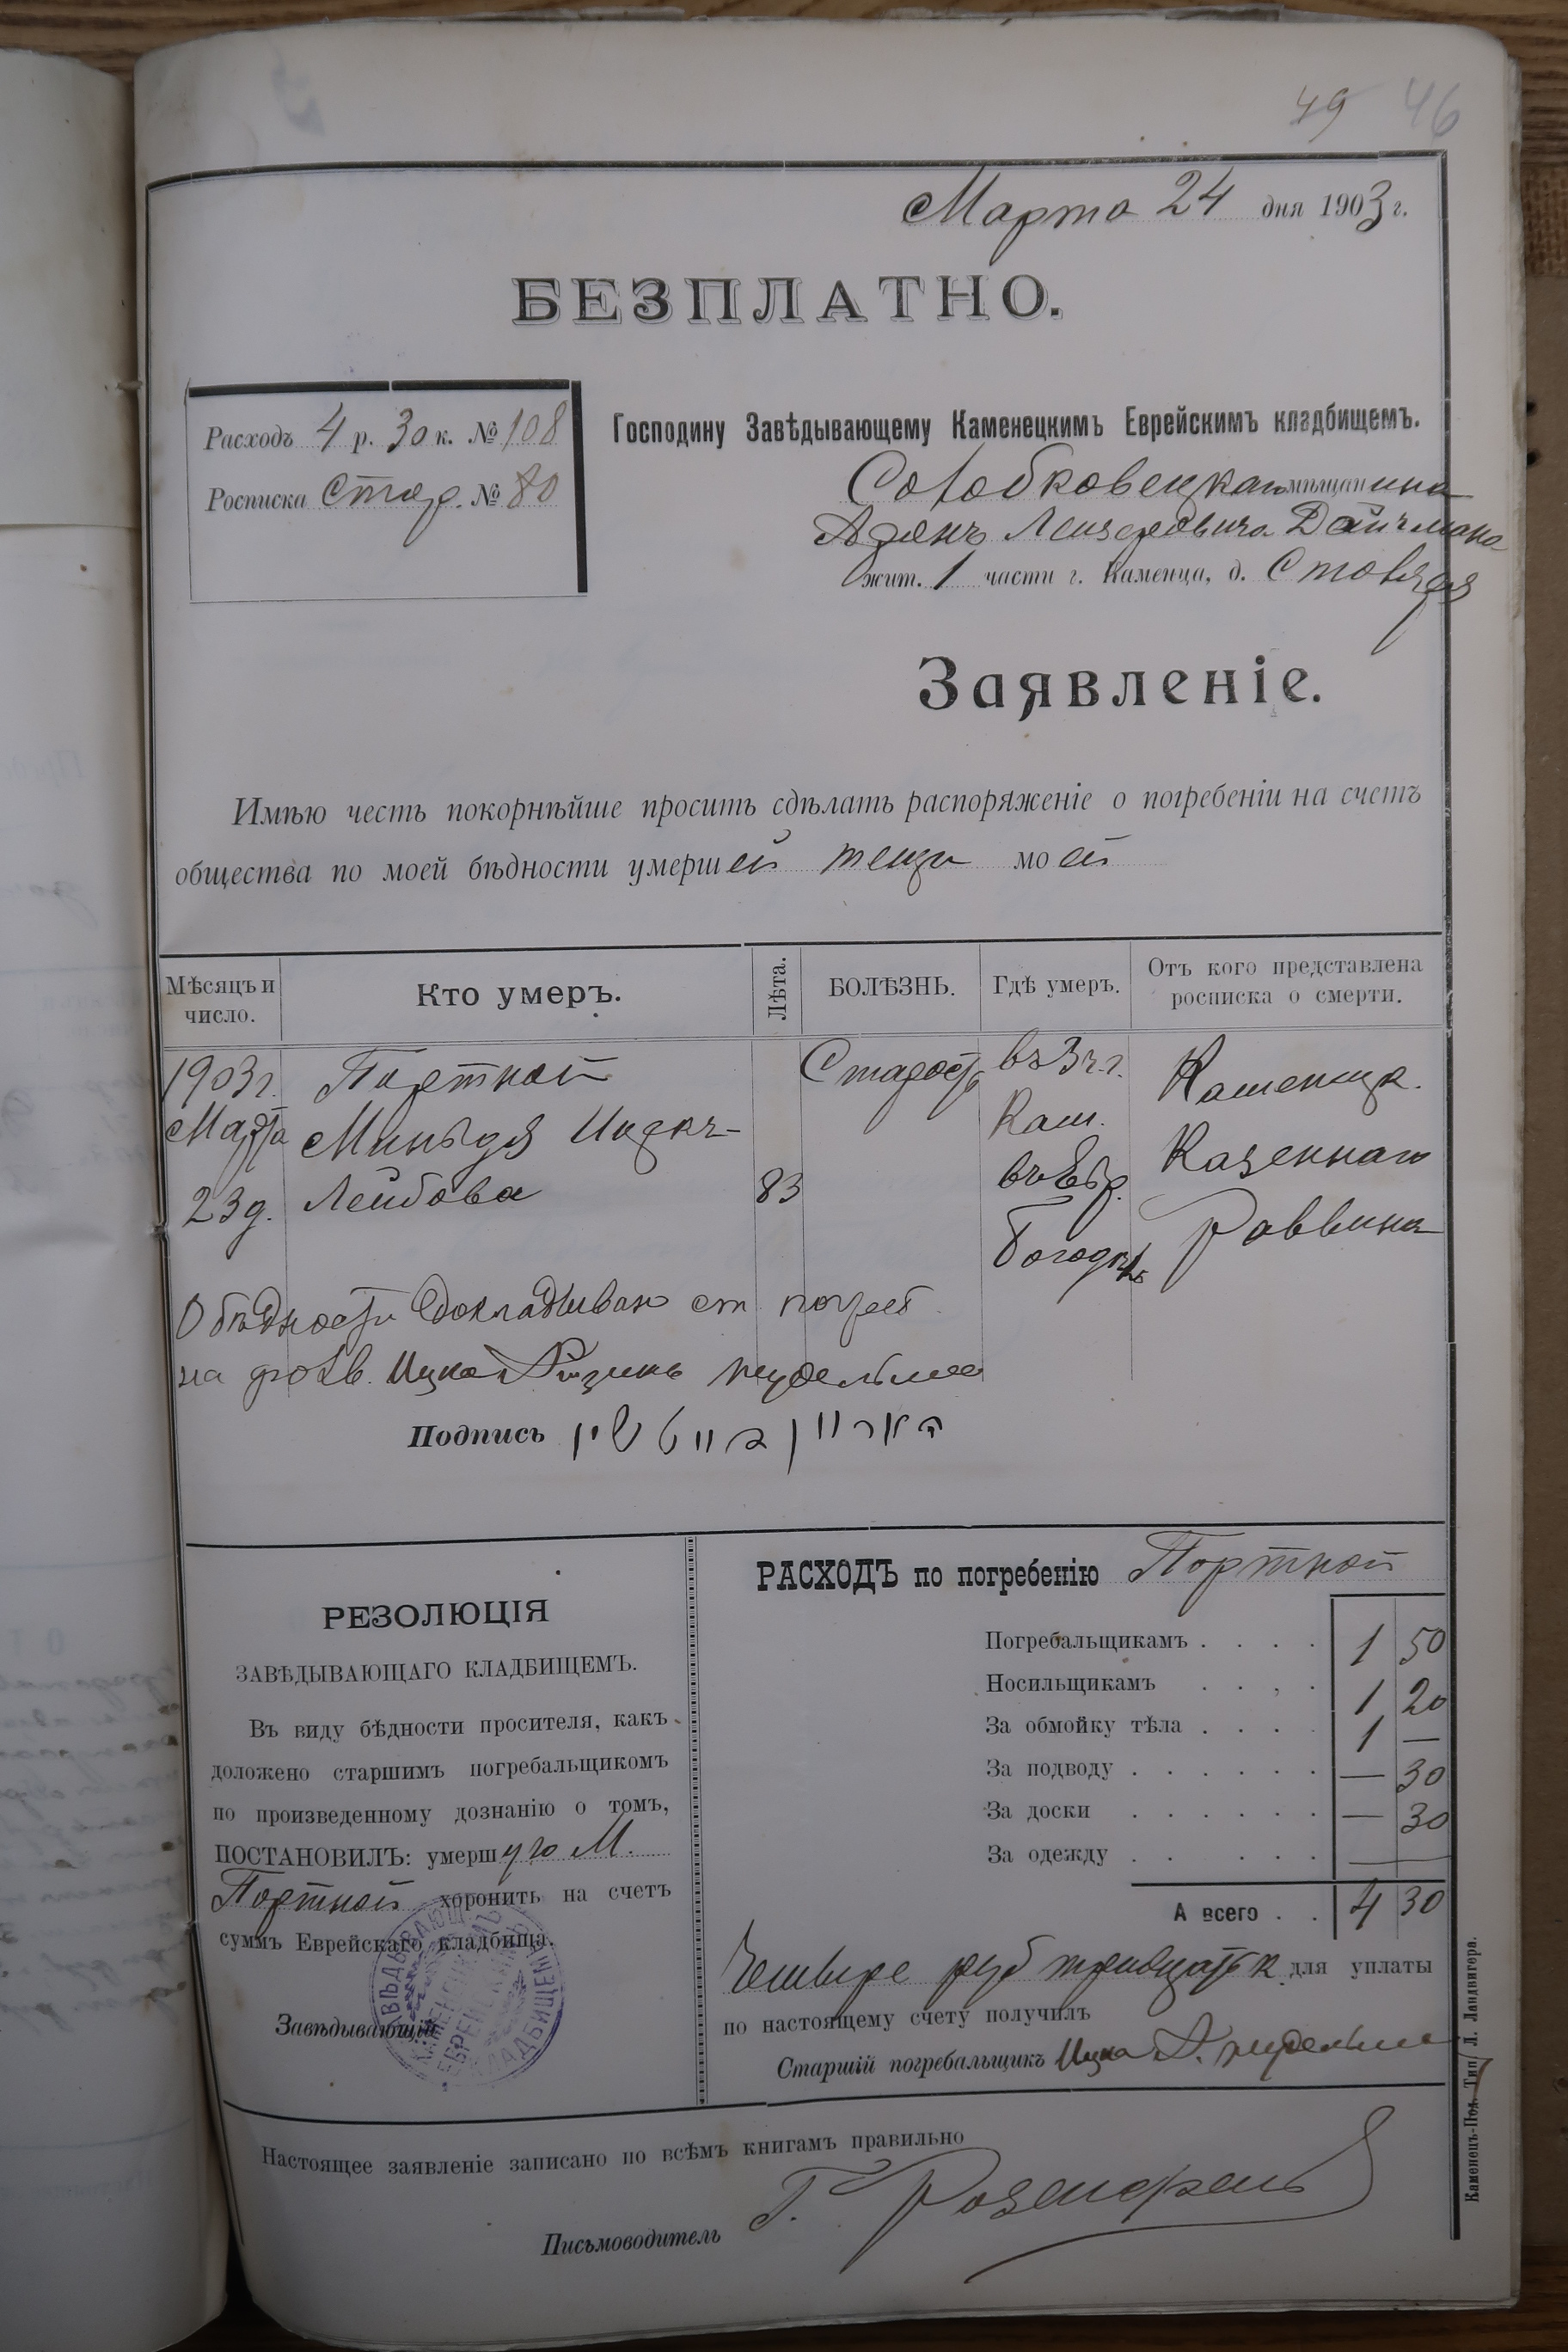 49 46
Марта 24 дня 1903 г.
БЕЗПЛАТНО.
Расходъ 4 р. 30 к. № 108
Росписка Стар. № 80
Господину Завѣдывающему Каменецкимъ Еврейскимъ кладбищемъ.
Солобковецкаго мѣщанина
Лейзеровича Дайчмана
жит. 1 части г. Каменца, д.
Заявленіе.
Имѣю честь покорнѣйше просить сдѣлать распоряженіе о погребеніи на счетъ
общества по моей бѣдности умершей тещи моей
Мѣсяцъ и число.
Кто умеръ.
Лѣта.
БОЛѢЗНЬ.
Гдѣ умеръ.
Отъ кого представлена росписка о смерти.
1903 г. Портной Старость въ 3 ч. г. Каменецк.
Марта Кам. Казеннаго
23 д. Лейбова 83 въ Евр. Раввина
Богодѣл.
О бѣдности докладываю ст погреб
Ицко
Подпись
РЕЗОЛЮЦІЯ
ЗАВѢДЫВАЮЩАГО КЛАДБИЩЕМЪ.
Въ виду бѣдности просителя, какъ
доложено старшимъ погребальщикомъ
по произведенному дознанію о томъ,
ПОСТАНОВИЛЪ: умершую М.
Портной хоронить на счетъ
суммъ Еврейскаго кладбища.
Завѣдывающій
ЗАВѢДЫВАЮЩ. КАМЕНЕЦКИМЪ ЕВРЕЙСКИМЪ КЛАДБИЩЕМЪ
РАСХОДЪ по погребенію Портной
Погребальщикамъ . . . . 1 50
Носильщикамъ . . , . 1 20
За обмойку тѣла . . . . 1 —
За подводу . . . . . . — 30
За доски . . . . . . — 30
За одежду . . . . . . —
А всего . . 4 30
Четыре руб тридцать к. для уплаты
по настоящему счету получилъ
Старшій погребальщикъ Ицко
Настоящее заявленіе записано по всѣмъ книгамъ правильно
Письмоводитель Г.
Каменецъ-Под. Тип. Л. Ландвигера.